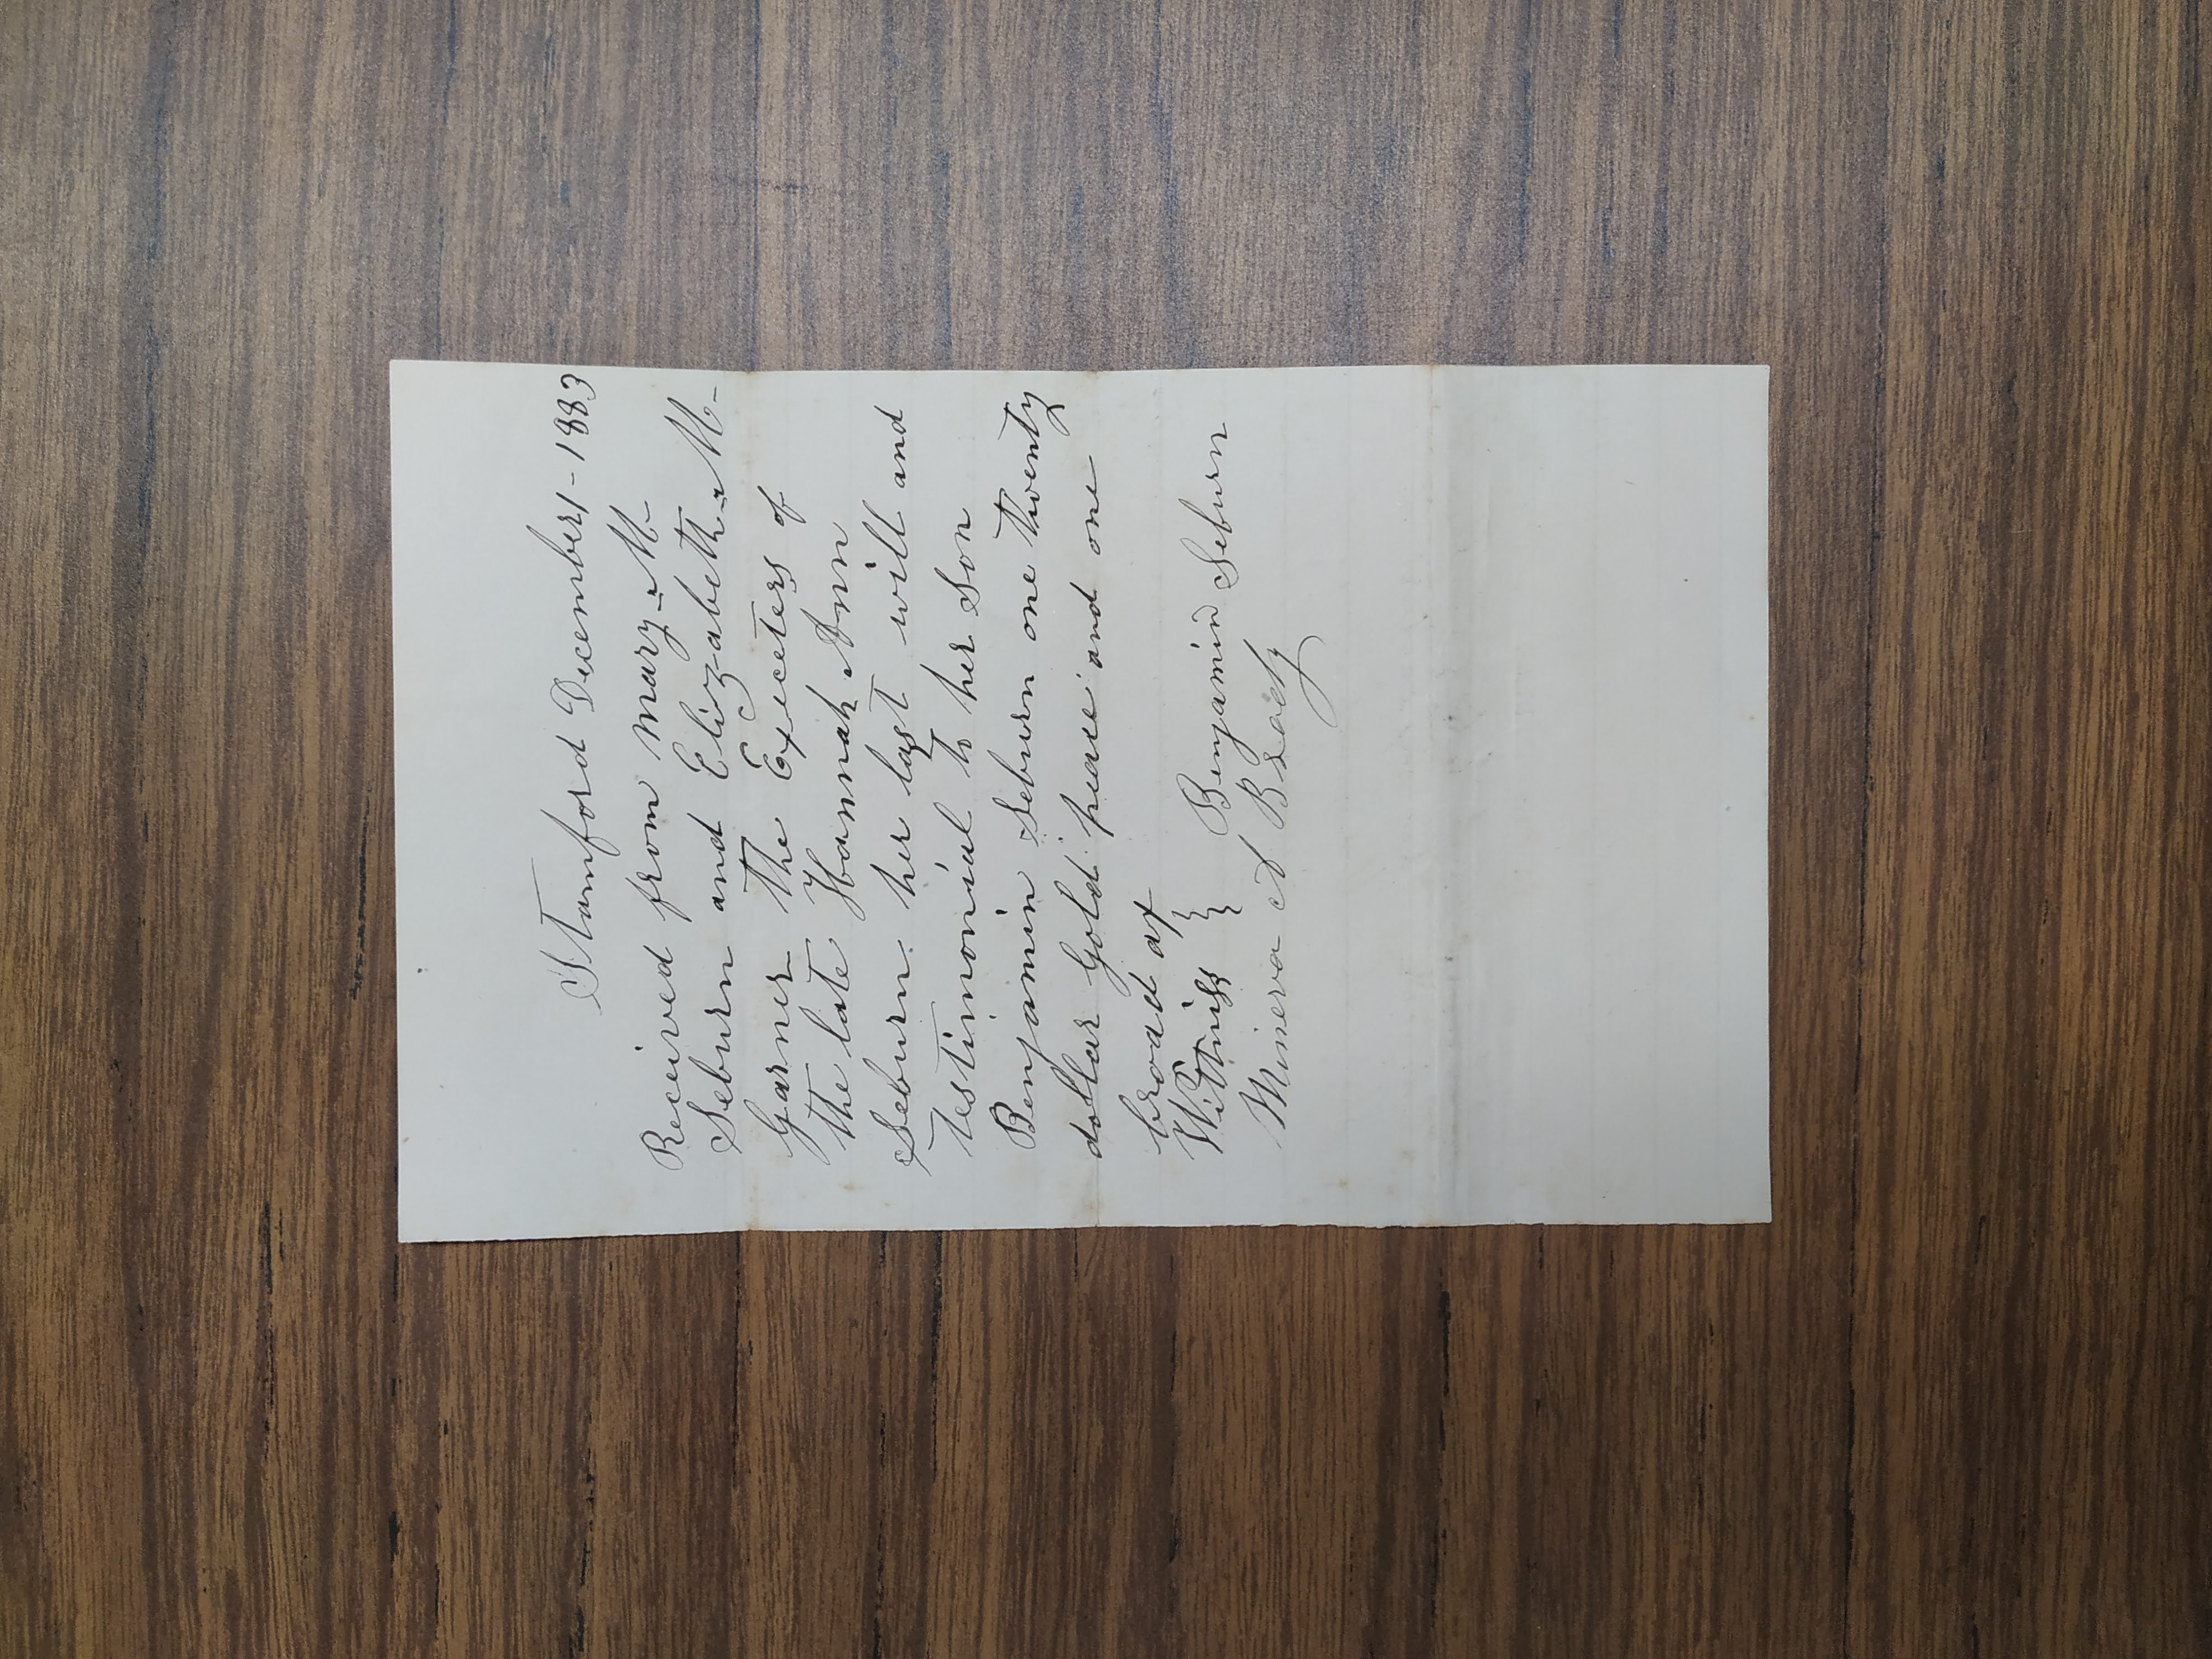 Stamford December 1 - 1883
Received from Mary M-
Seburn and Elizabeth M-
Garner the Execeters of
the late Hannah Ann
Seburn her last will and
testimonial to her Son
Benjamin Seburn one twenty
dollar Gold peace and one
broad af
Wittniss } Benjamin Seburn
Minerva A Brady